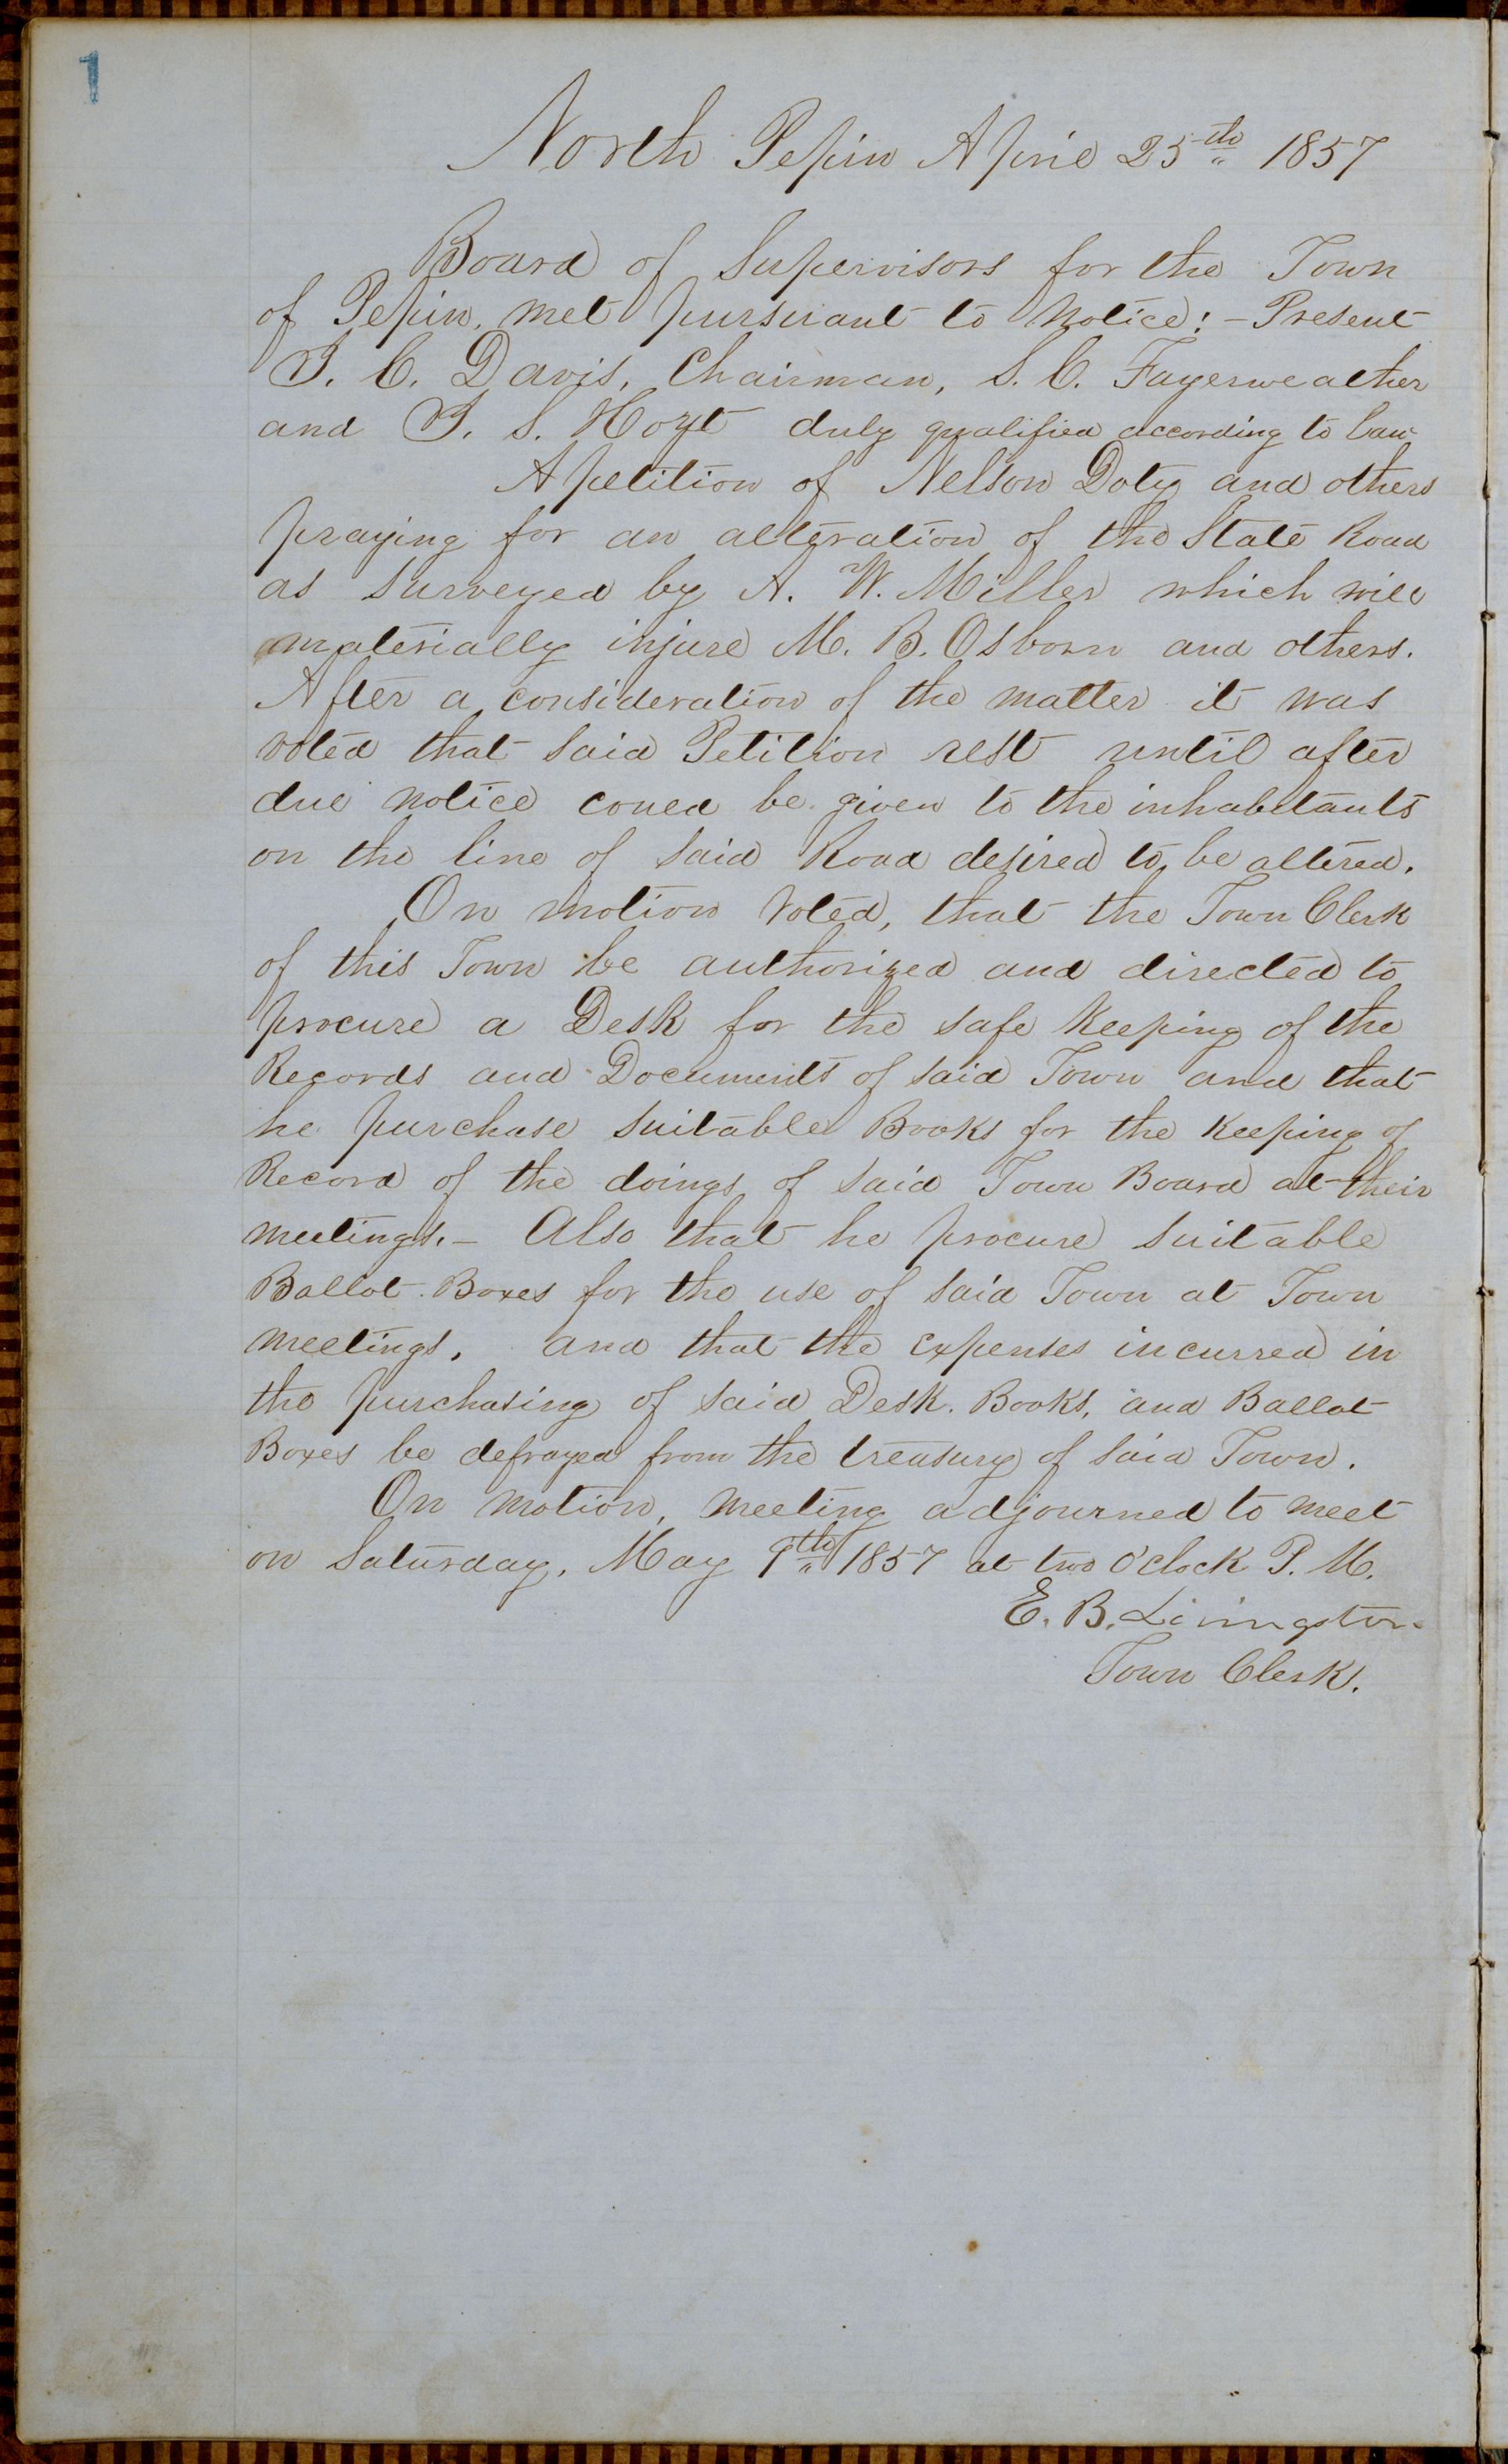 1
North Pepin April 25th 1857
Board of Supervisors for the Town
of Pepin, met pursuant to notice: - Present
S. C. Davis, Chairman, S. C. Fayerweather
and S. S. Hoyt duly qualified according to law
A petition of Nelson Doty and others
praying for an alteration of the State Road
as surveyed by A. W. Miller which will
materially injure M. B. Osborn and others.
After a consideration of the matter it was
voted that said Petition rest until after
due notice could be given to the inhabitants
on the line of said Road desired to be altered.
On motion Voted, that the Town Clerk
of this Town be authorized and directed to
procure a Desk for the safe Keeping of the
Records and Documents of said Town and that
he purchase suitable Books for the Keeping of
Record of the doings of said Town Board at their
meetings. - Also that he procure suitable
Ballot Boxes for the use of said Town at Town
meetings, and that the expenses incurred in
the purchasing of said Desk. Books, and Ballot
Boxes be defrayed from the treasury of said Town.
On motion, meeting adjourned to meet
on Saturday, May 9th 1857 at two O'clock P. M.
E. B. Livingston
Town Clerk.